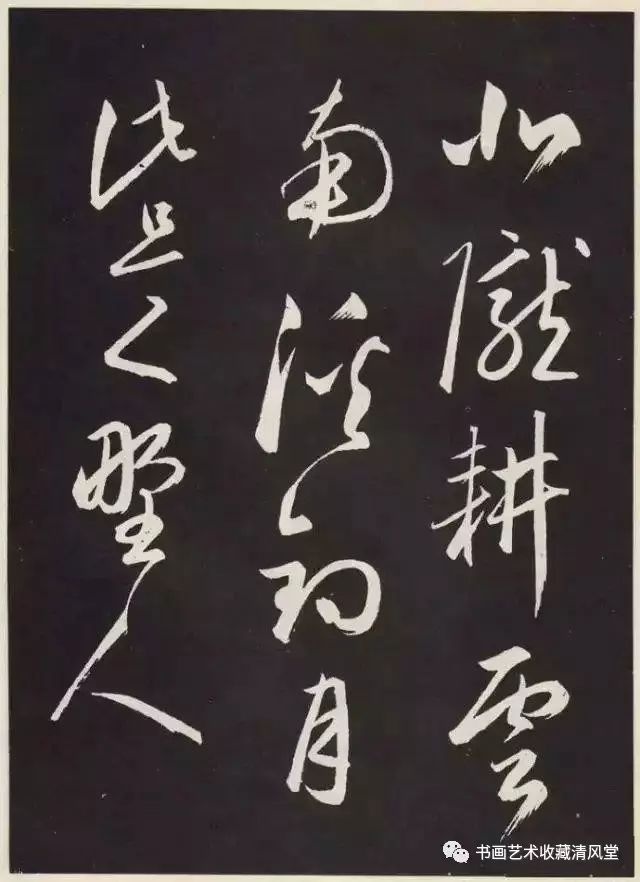 北隴耕雲
南溪釣月
此是野人
书画艺术收藏清风堂